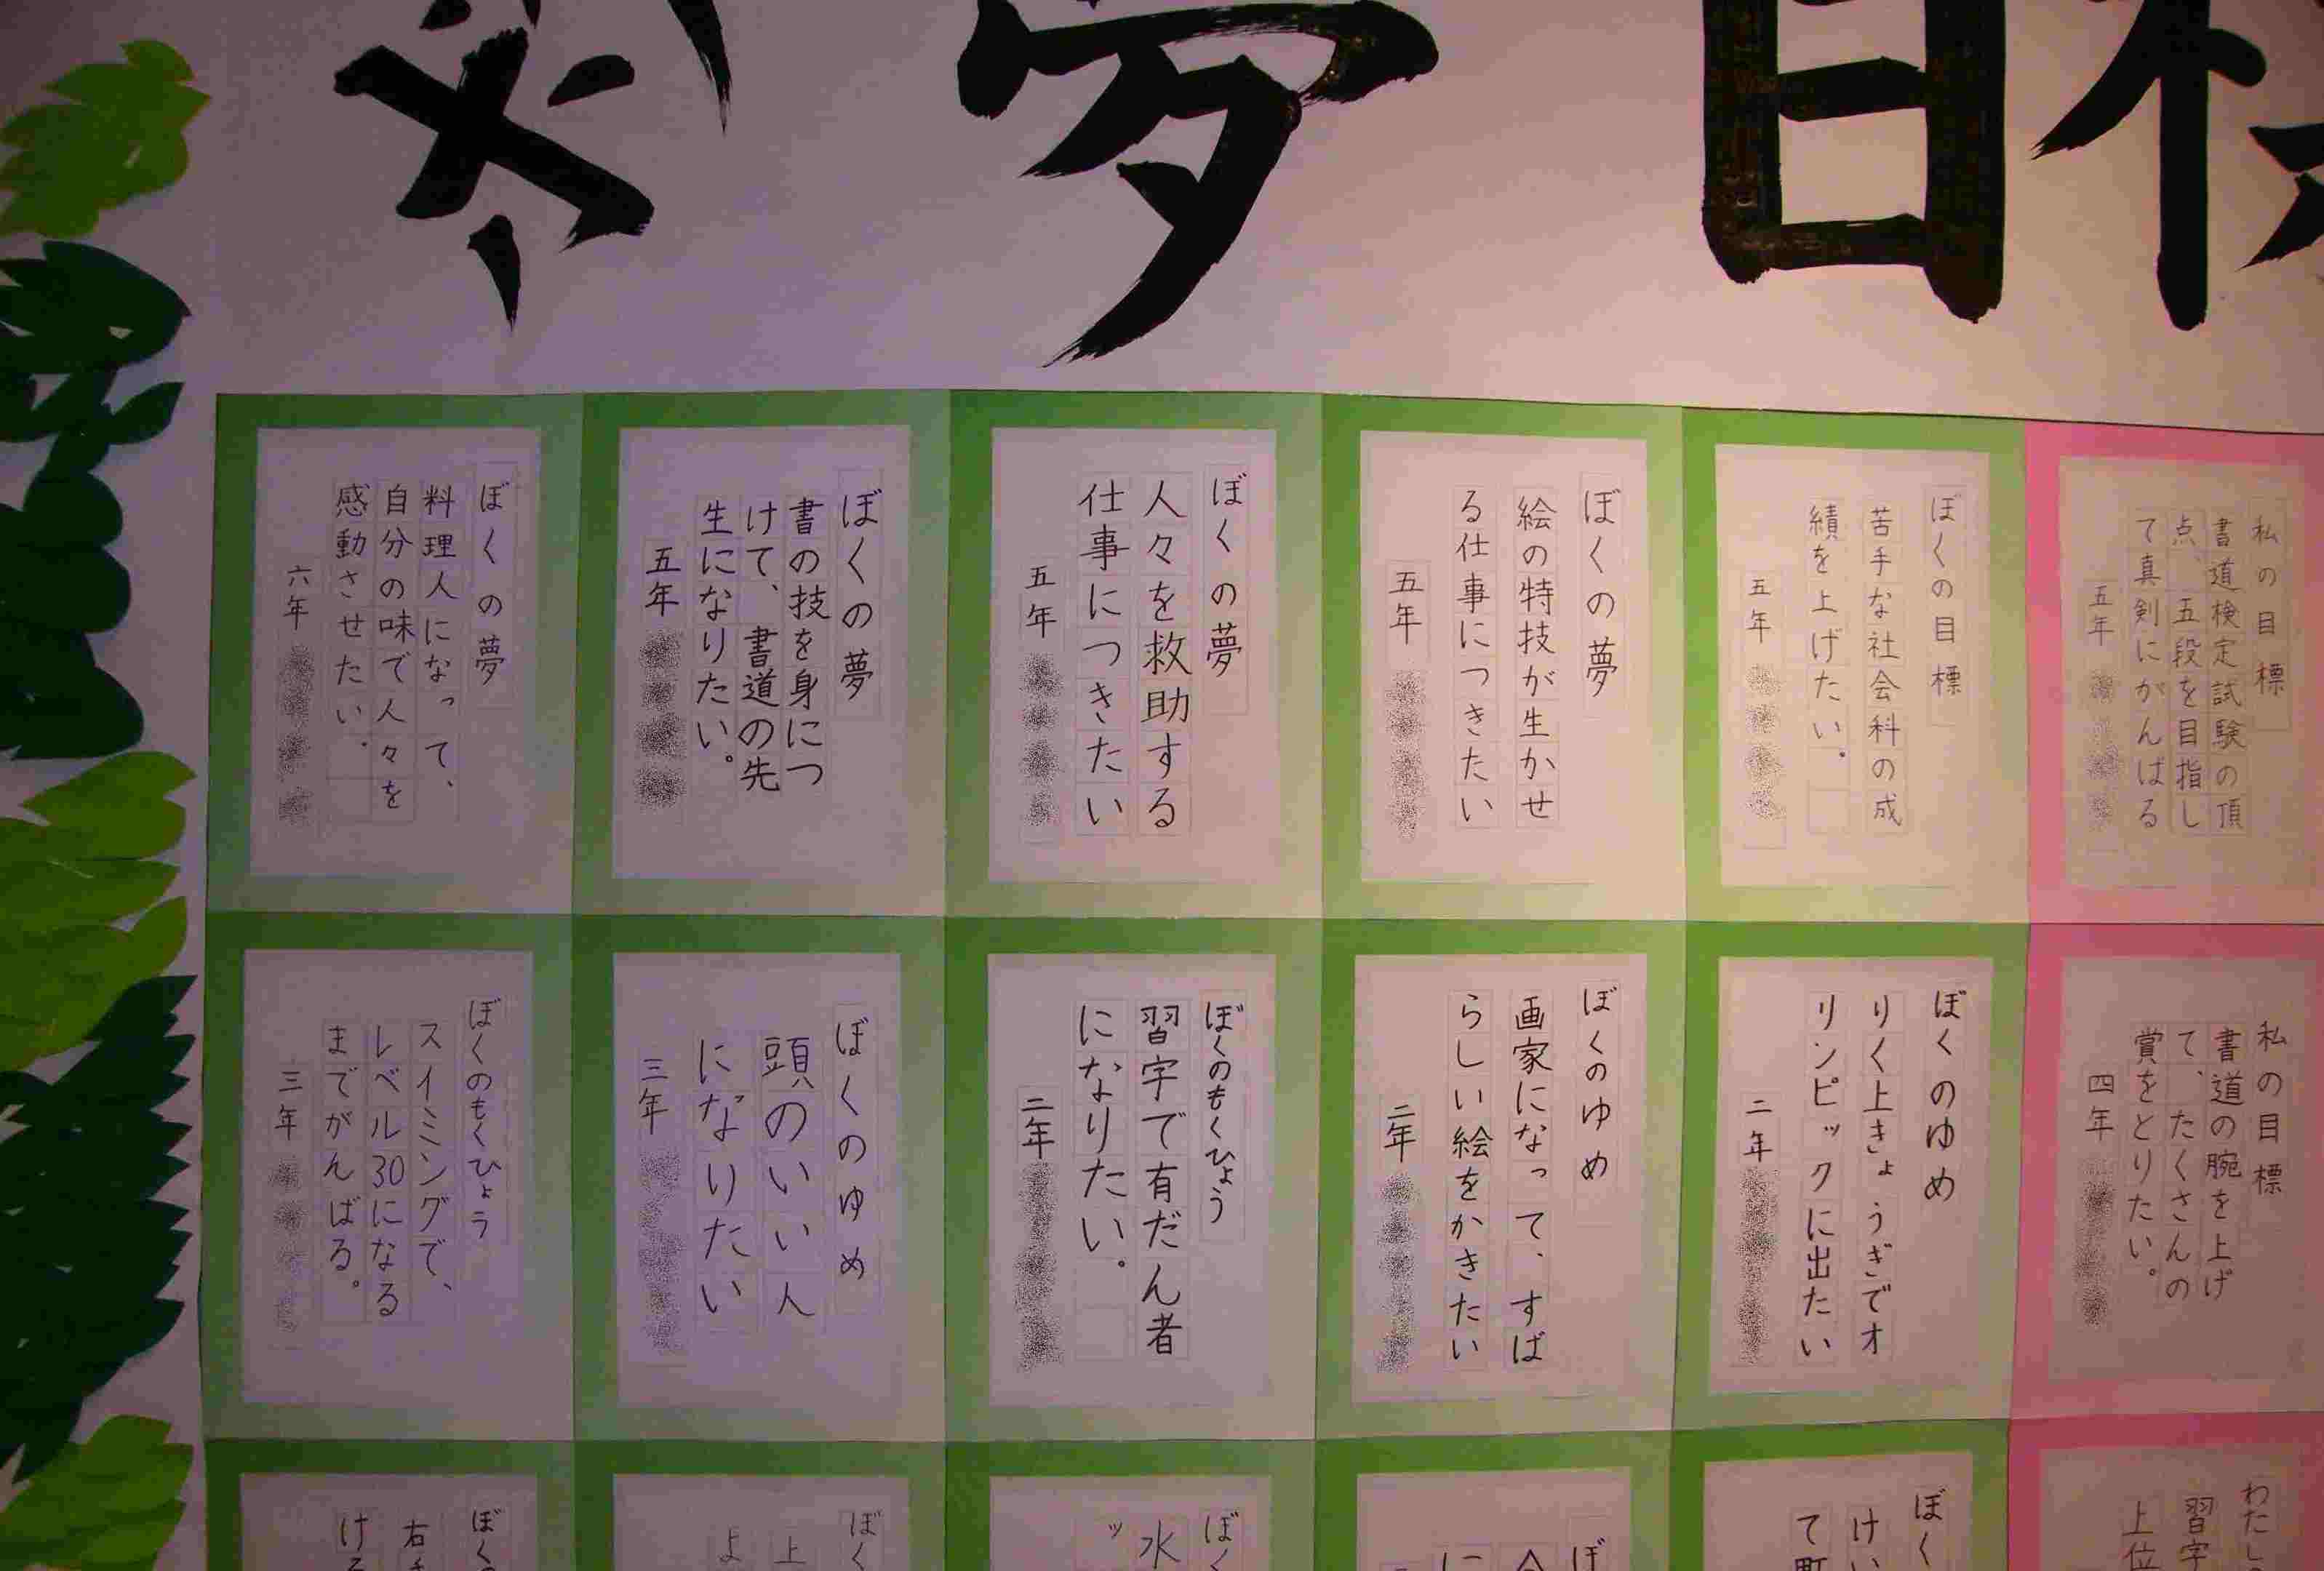 夢
目標
私の目標
書道検定試験の頂
点、五段を目指し
て真剣にがんばる
五年
ぼくの目標
苦手な社会科の成
績を上げたい。
五年
ぼくの夢
絵の特技が生かせ
る仕事につきたい
五年
ぼくの夢
人々を救助する
仕事につきたい
五年
ぼくの夢
書の技を身につ
けて、書道の先
生になりたい。
五年
ぼくの夢
料理人になって、
自分の味で人々を
感動させたい。
六年
私の目標
書道の腕を上げ
て、たくさんの
賞をとりたい。
四年
ぼくのゆめ
りく上きょうぎでオ
リンピックに出たい
二年
ぼくのゆめ
画家になって、すば
らしい絵をかきたい
二年
ぼくのもくひょう
習字で有だん者
になりたい。
二年
ぼくのゆめ
頭のいい人
になりたい
三年
ぼくのもくひょう
スイミングで、
レベル30になる
までがんばる。
三年
わたし
習字
上位
ぼく
けい
て
ぼ
に
ぼく
水
ッ
ぼく
上
よ
ぼく
右
ける